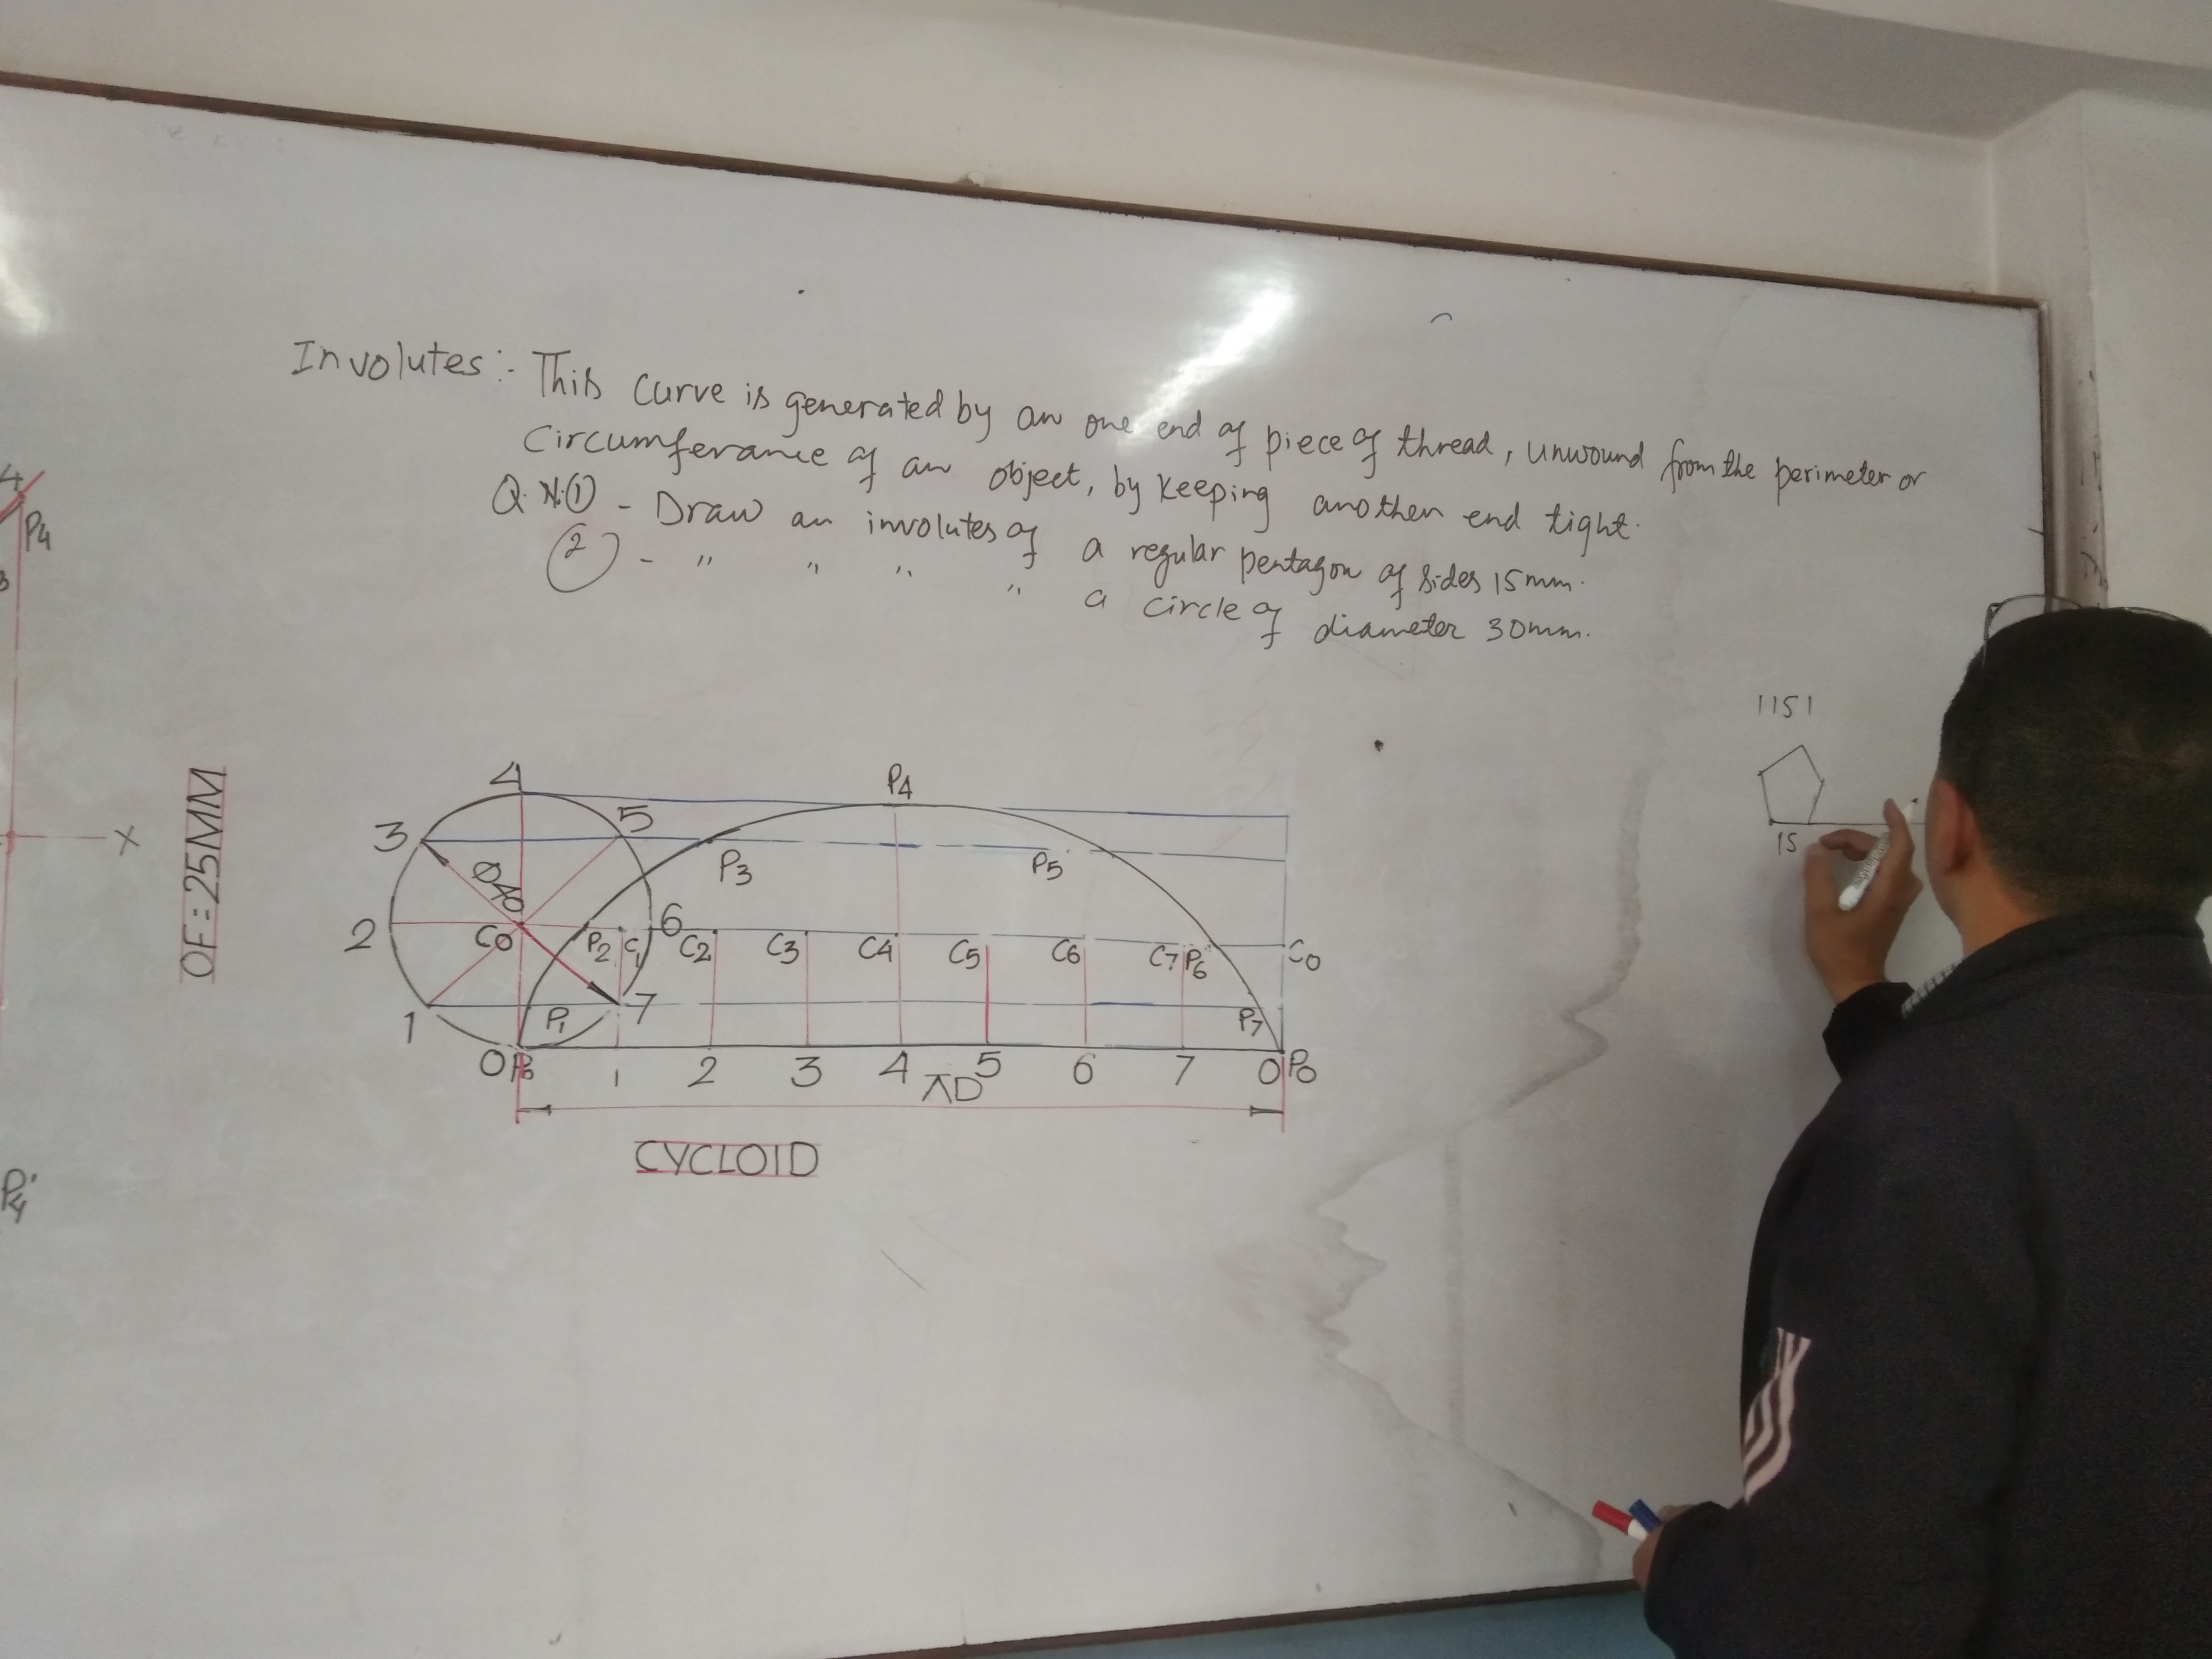 Involutes:- This curve is generated by an one end of piece of thread, unwound from the perimeter or
circumferance of an object, by keeping another end tight.
Q.N.① - Draw an involutes of a regular pentagon of sides 15mm.
② - " " " " a circle of diameter 30mm.
1151
15
4
P4
X
OF=25MM
P4'
4 P4
3 5 P3 P5
Ø40
2 C0 P2 C1 6 C2 C3 C4 C5 C6 C7 P6 C0
1 P1 7 P7
0 P0 1 2 3 4 5 6 7 0 P0
πD
CYCLOID